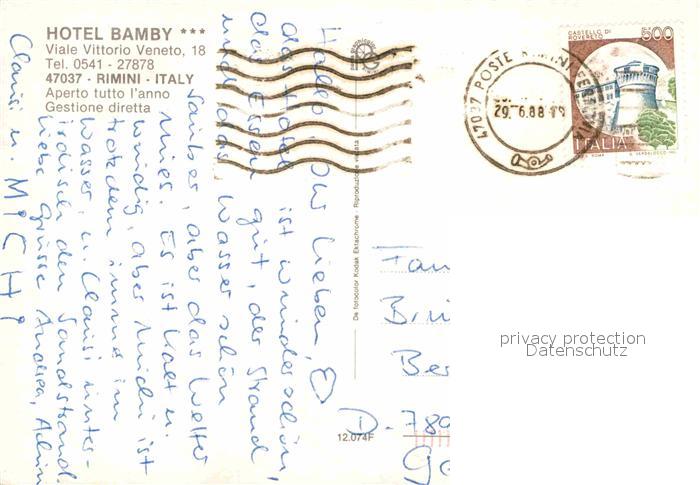 HOTEL BAMBY ***
Viale Vittorio Veneto, 18
Tel. 0541 - 27878
47037 - RIMINI - ITALY
Aperto tutto l'anno
Gestione diretta
Hallo Ihr Lieben,
das Hotel ist wunderschön,
das Essen gut, der Strand
und das Wasser schön
sauber, aber das Wetter
mies. Es ist kalt u.
windig, aber Michi ist
trotzdem immer im
Wasser, u. Clarisi unter-
irdisch den Sandstrand.
Liebe Grüsse Andrea,
Clarisi u. MICHI
De fotocolor Kodak Ektachrome - Riproduzione vietata
12.074F
47037 POSTE RIMINI
29.6.88
CASTELLO DI
ROVERETO
500
ITALIA
Fam
Bri
Ber
D. 780
privacy protection
Datenschutz